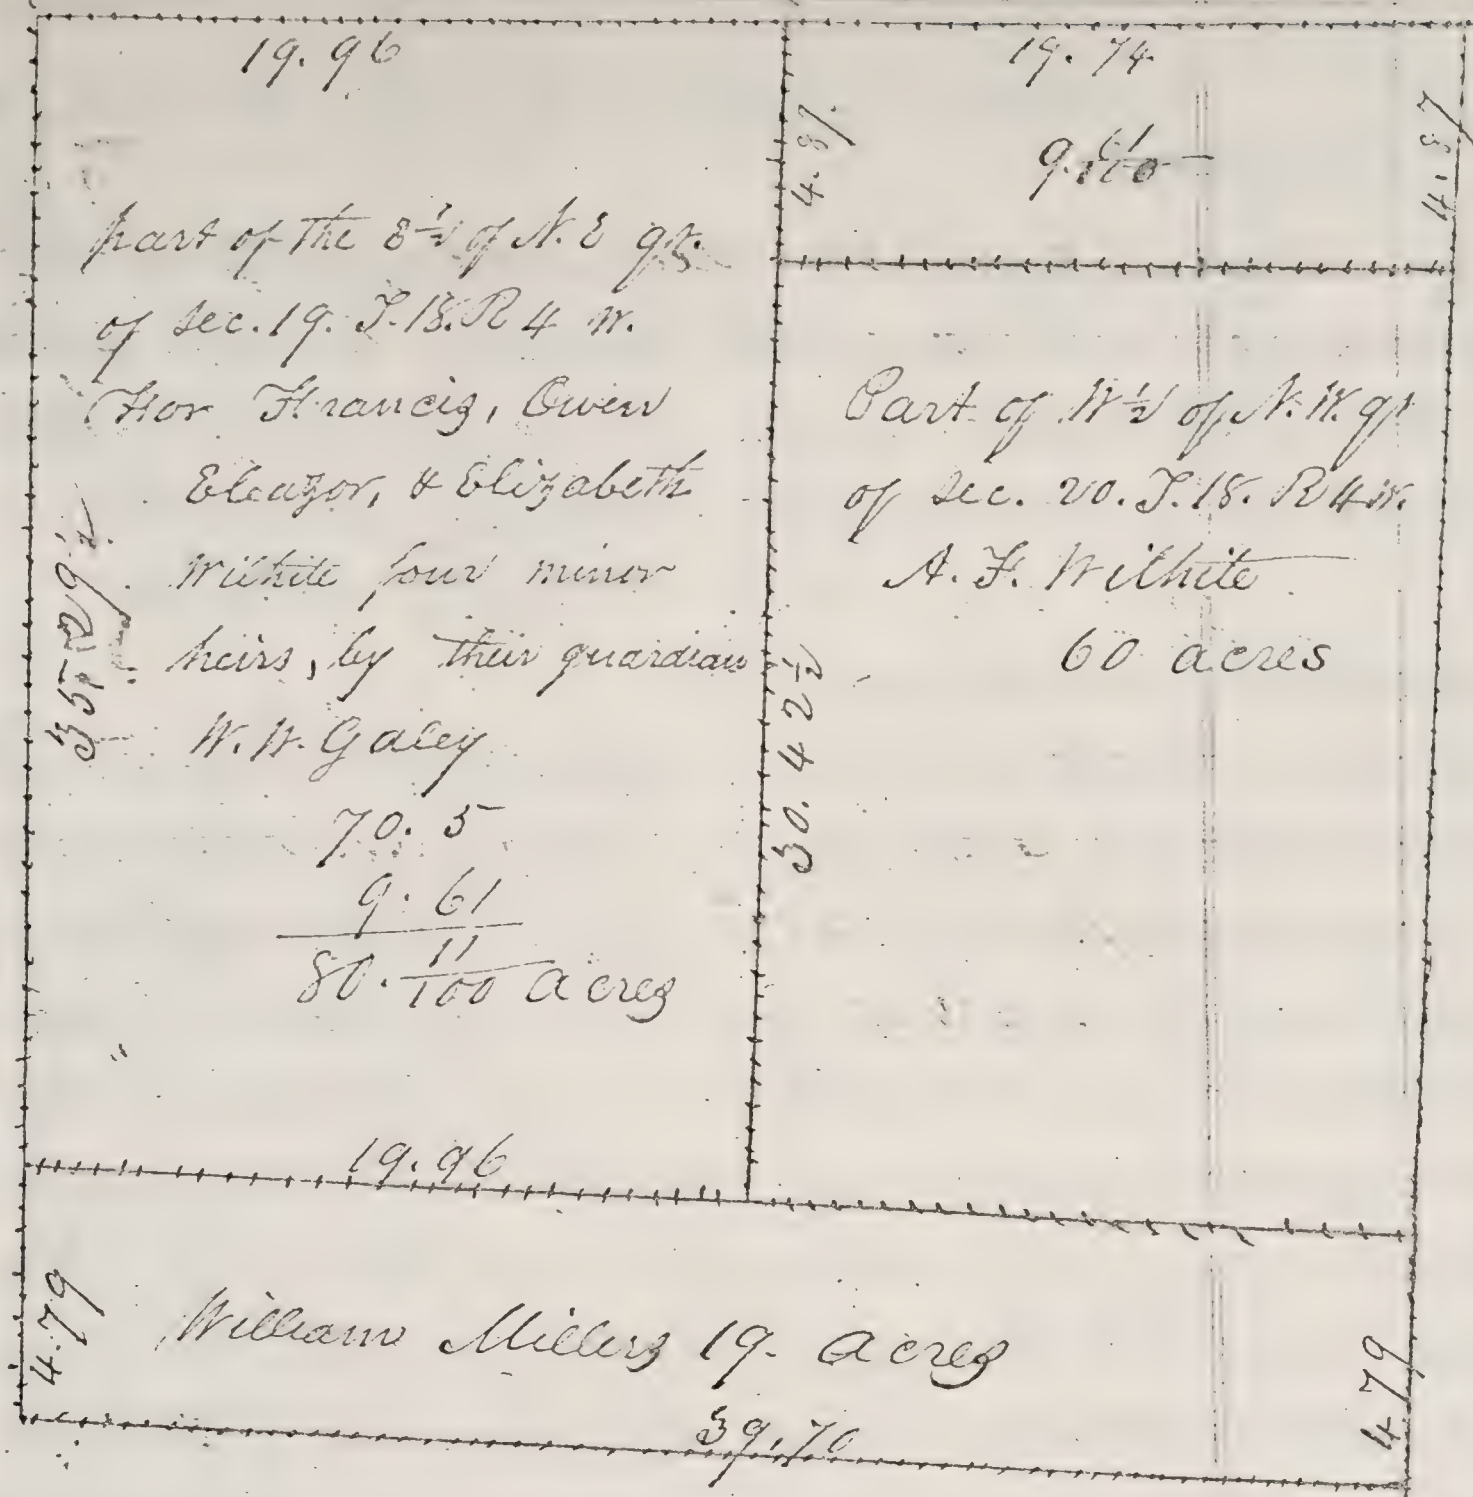 19.96
part of The E ½ of N. E qr.
of sec. 19. T. 18. R 4 W.
For Francis, Owen
Eleazor, & Elizabeth
Wilhite four minor
heirs, by their guardian
W. W. Galey
70. 5
9. 61
80. 11/100 acres
35.29½
19.96
19.74
4.87
9. 61/100
4.87
30.42½
Part of W ½ of N. W. qr
of sec. 20. T. 18. R 4 W.
A. F. Wilhite
60 acres
4.79
William Millers 19. acres
4 79
39.70